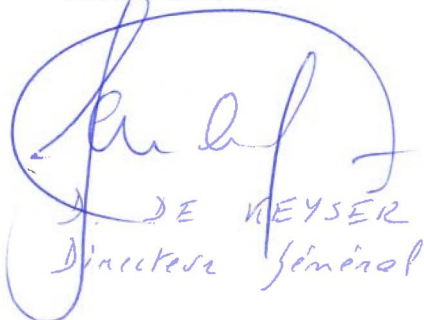 D. DE KEYSER
Directeur Général